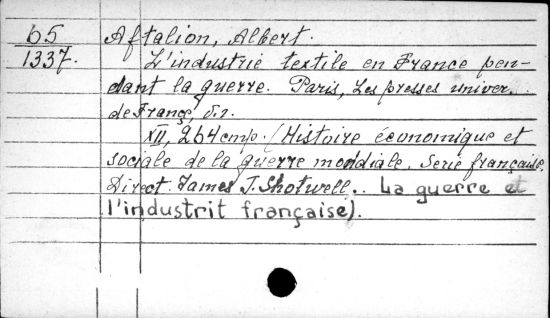 65 Aftalion, Albert.
1337. L'industrie textile en France pen-
dant la guerre. Paris, Les presses univer.
de France, s.d.
XII, 264 cmp. (Histoire économique et
sociale de la guerre mondiale. Serie française.
Direct. James T. Shotwell.. La guerre et
l'industrit française).